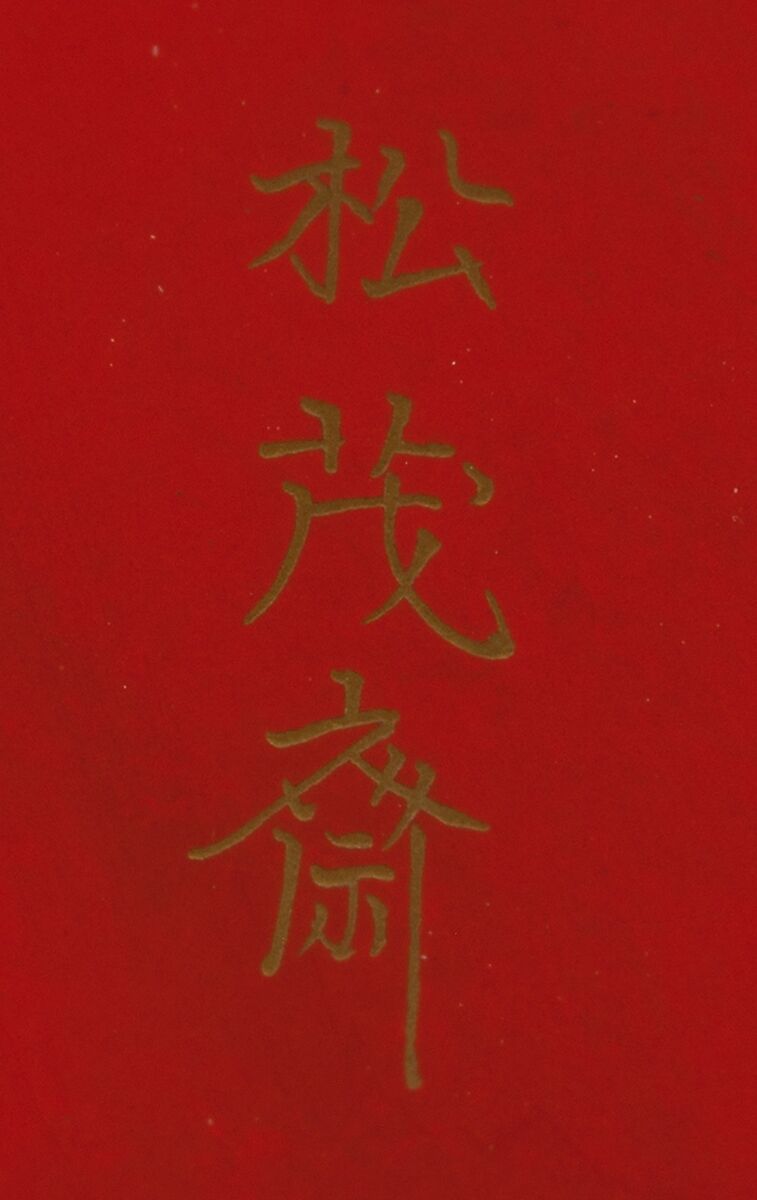 松茂斎